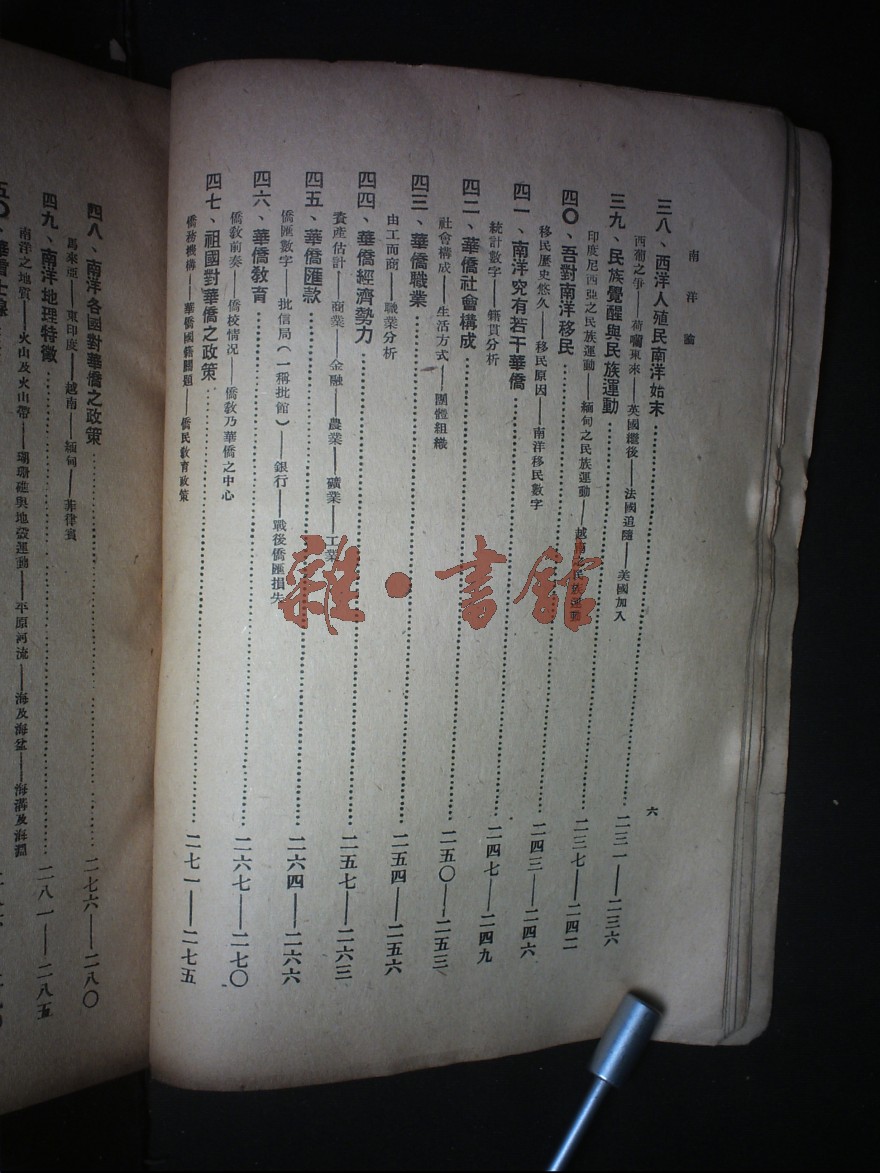 南洋論
六
三八、西洋人殖民南洋始末………二三一——二三六
西葡之爭——荷蘭東來——英國繼後——法國追隨——美國加入
三九、民族覺醒與民族運動………二三七——二四二
印度尼西亞之民族運動——緬甸之民族運動——越南之民族運動
四〇、吾對南洋移民………二四三——二四六
移民歷史悠久——移民原因——南洋移民數字
四一、南洋究有若干華僑………二四七——二四九
統計數字——籍貫分析
四二、華僑社會構成………二五〇——二五三
社會構成——生活方式——團體組織
四三、華僑職業………二五四——二五六
由工而商——職業分析
四四、華僑經濟勢力………二五七——二六三
資產估計——商業——金融——農業——礦業——工業
四五、華僑匯款………二六四——二六六
僑匯數字——批信局(一稱批館)——銀行——戰後僑匯損失
四六、華僑敎育………二六七——二七〇
僑敎前奏——僑校情況——僑敎乃華僑之中心
四七、祖國對華僑之政策………二七一——二七五
僑務機構——華僑國籍問題——僑民敎育政策
四八、南洋各國對華僑之政策………二七六——二八〇
馬來亞——東印度——越南——緬甸——菲律賓
四九、南洋地理特徵………二八一——二八五
南洋之地質——火山及火山帶——珊瑚礁與地殼運動——平原河流——海及海盆——海溝及海淵
五〇、
雜·書館